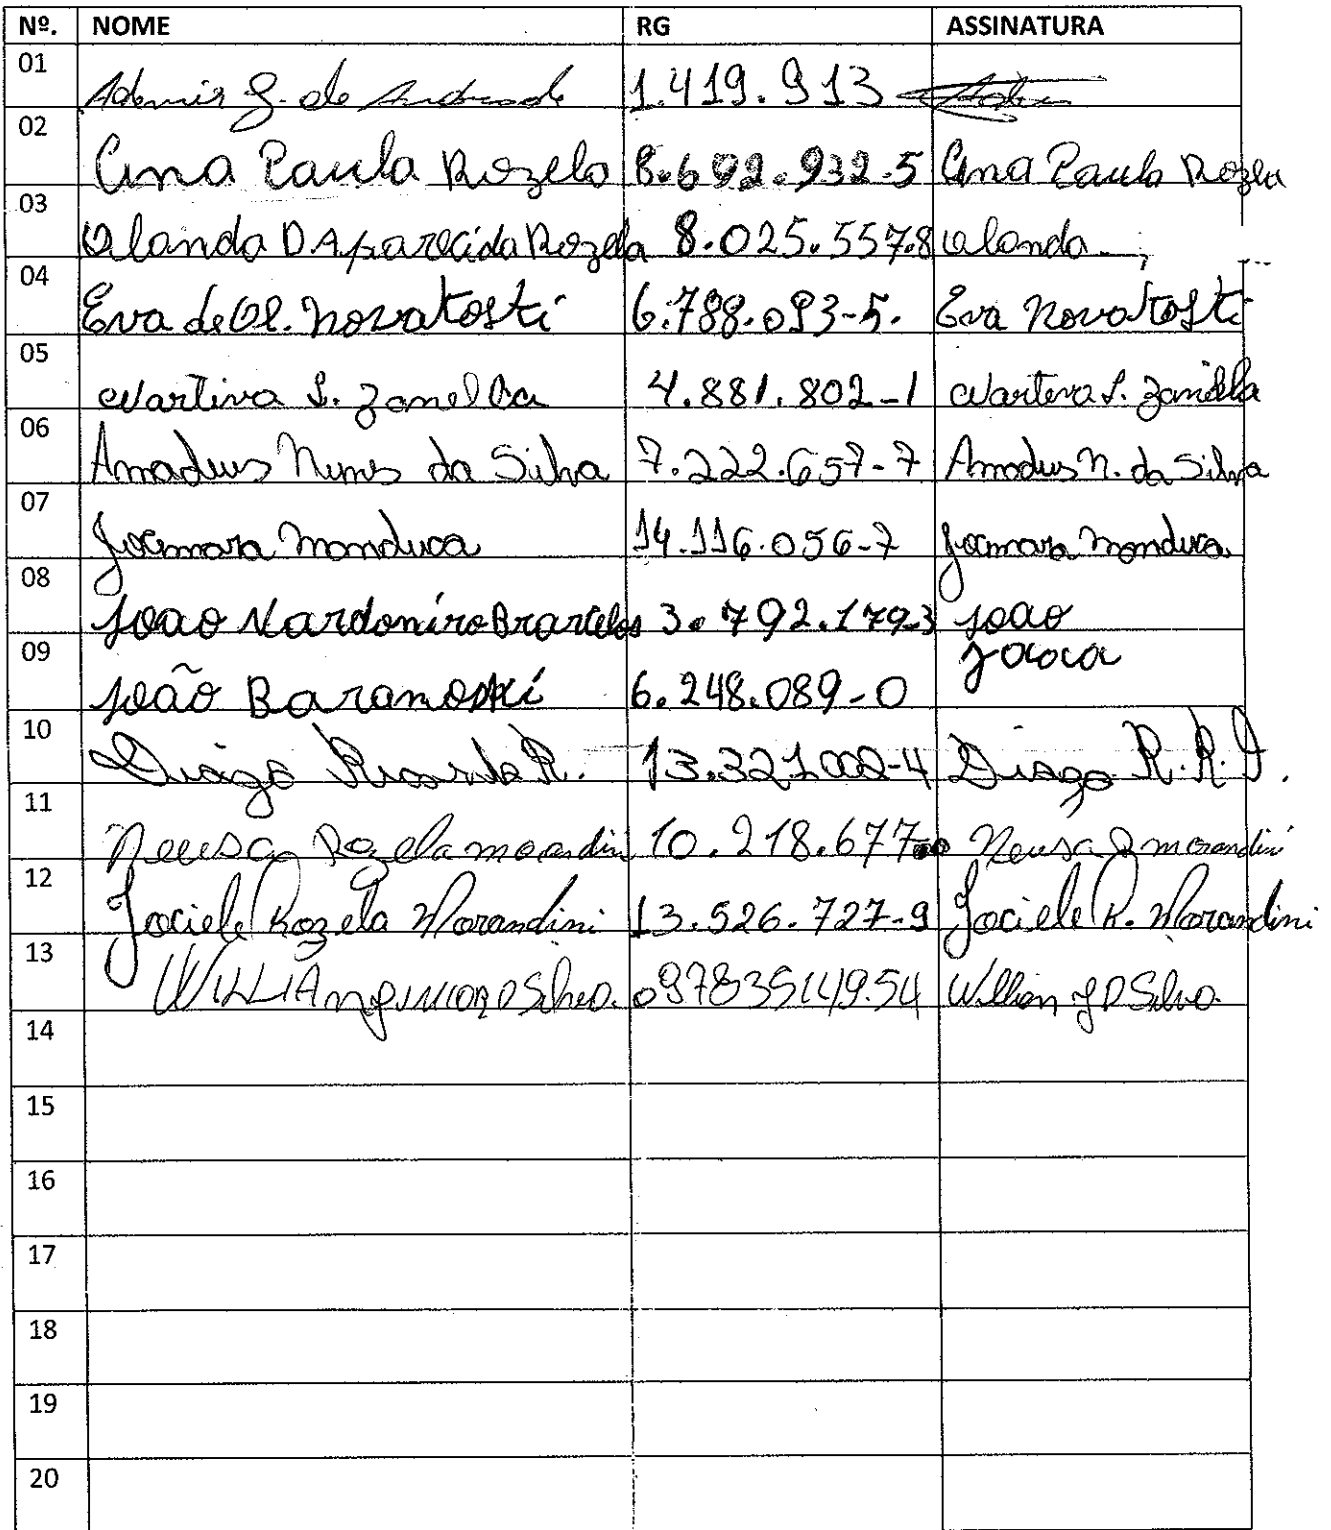 Nº. NOME RG ASSINATURA
01 Ademir S. de Andrade 1.419.913
02 Ana Paula Rozela 8.692.932-5 Ana Paula Rozela
03 Olanda D Aparecida Rozela 8.025.557.8 Olanda
04 Eva de Ol. Novatosti 6.788.093-5. Eva Novatosti
05 S. Zanella 4.881.802-1 S. Zanella
06 Amadeus Nunes da Silva 7.222.657-7 Amadeus N. da Silva
07 Jocimara Manduca 14.116.056-7 Jocimara Manduca
08 Joao 3.792.179-3 Joao
09 João Baranoski 6.248.089-0
10 Diogo Ricardo R. 13.321.002-4 Diogo R. R.
11 Neusa Rozela morandini 10.218.677 Neusa morandini
12 Jociele Rozela Morandini 13.526.727-9 Jociele R. Morandini
13 WILLIAM JUNIOR D Silva. Willian J D Silva.
14
15
16
17
18
19
20